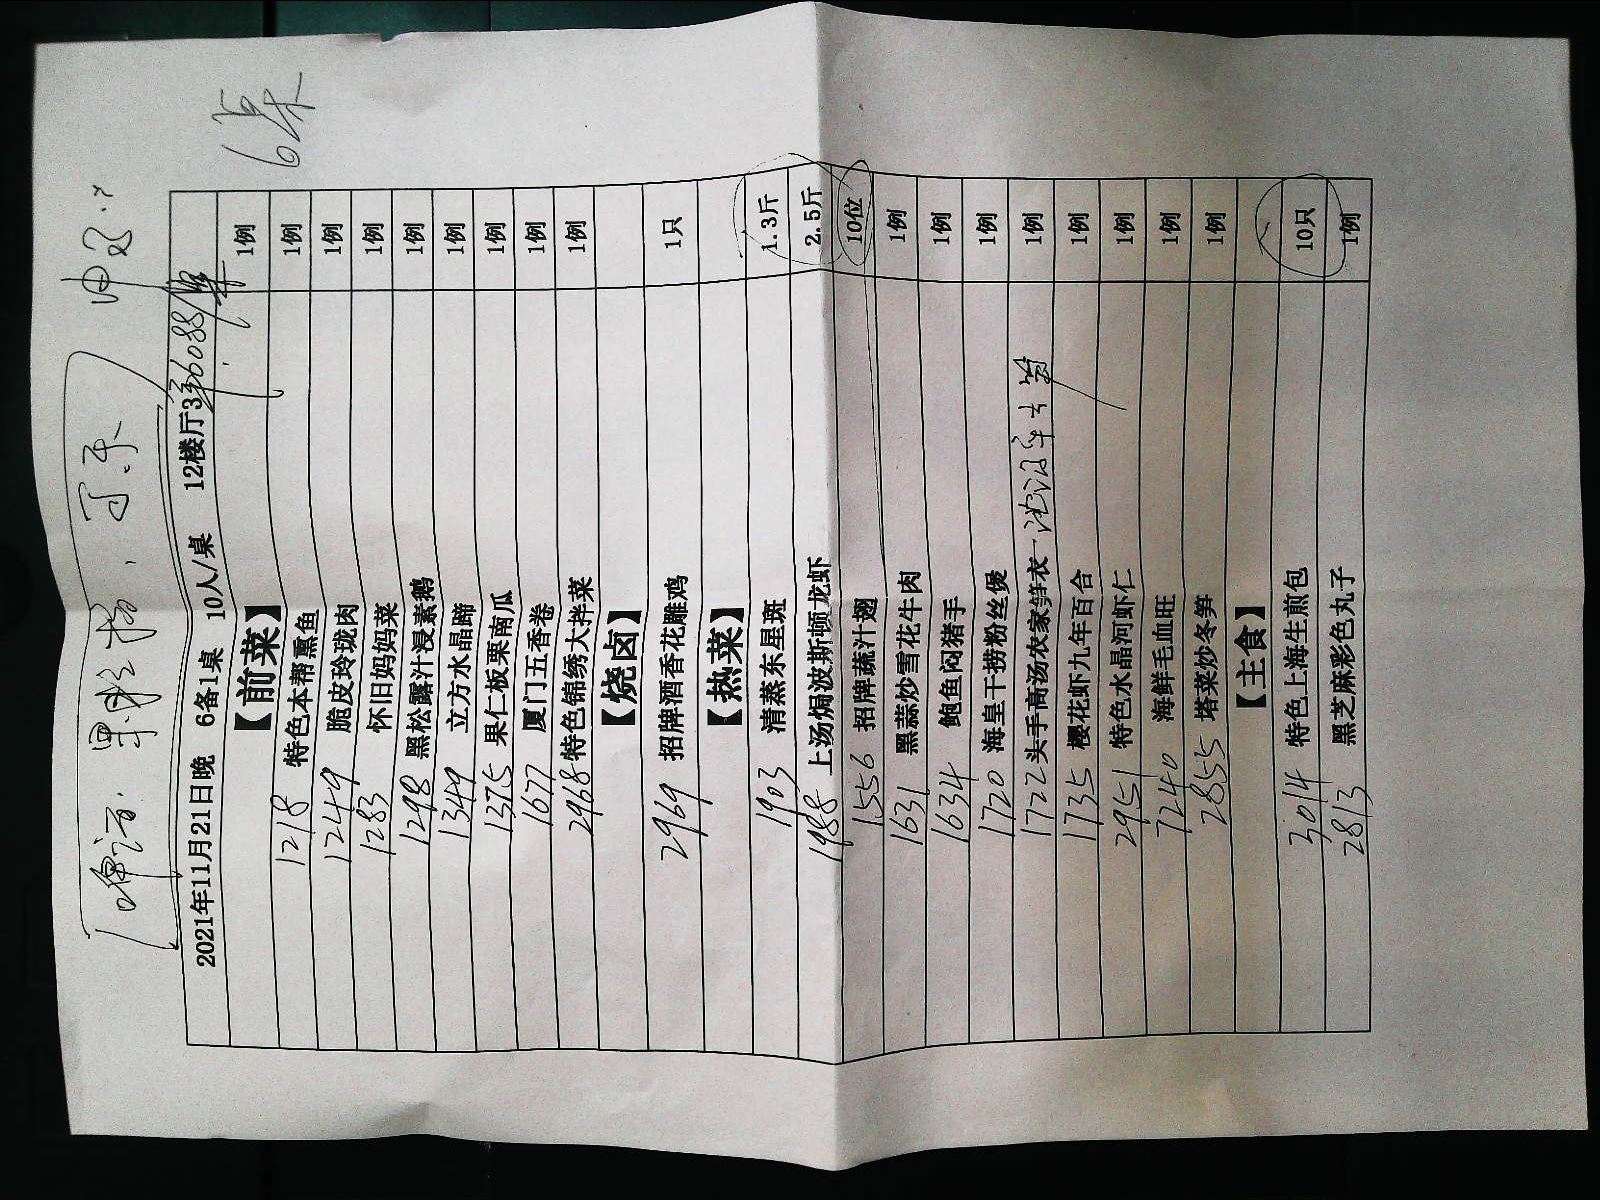 6桌
2021年11月21日晚 6备1桌 10人/桌 12楼厅3 6088/桌
【前菜】 1例
1218 特色本帮熏鱼 1例
1249 脆皮玲珑肉 1例
1283 怀旧妈妈菜 1例
1298 黑松露汁浸素鹅 1例
1349 立方水晶蹄 1例
1375 果仁板栗南瓜 1例
1677 厦门五香卷 1例
2968 特色锦绣大拌菜 1例
【烧卤】
2969 招牌酒香花雕鸡 1只
【热菜】
1903 清蒸东星斑 1.3斤
1988 上汤焗波斯顿龙虾 2.5斤
1556 招牌蔬汁翅 10位
1631 黑蒜炒雪花牛肉 1例
1634 鲍鱼闷猪手 1例
1720 海皇干捞粉丝煲 1例
1722 头手高汤农家笋衣 1例
1735 樱花虾九年百合 1例
2951 特色水晶河虾仁 1例
7240 海鲜毛血旺 1例
2855 塔菜炒冬笋 1例
【主食】
3014 特色上海生煎包 10只
2813 黑芝麻彩色丸子 1例